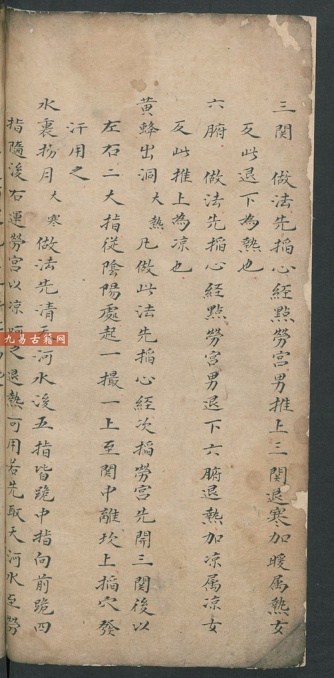 三関 做法先掐心經㸃勞宮男推上三関退寒加暖属熱女
反此退下為熱也
六腑 做法先掐心經㸃勞宮男退下六腑退熱加凉属凉女
反此推上為凉也
黄蜂出洞 大熱 凡做此法先掐心經次掐勞宮先開三関後以
左右二大指従陰陽處起一撮一上至関中離坎上掐穴發
汗用之
水裏捞月 大寒 做法先清天河水後五指皆跪中指向前跪四
指隨後右運勞宮以凉 之退熱可用若先取天河水至勞
九易古籍网